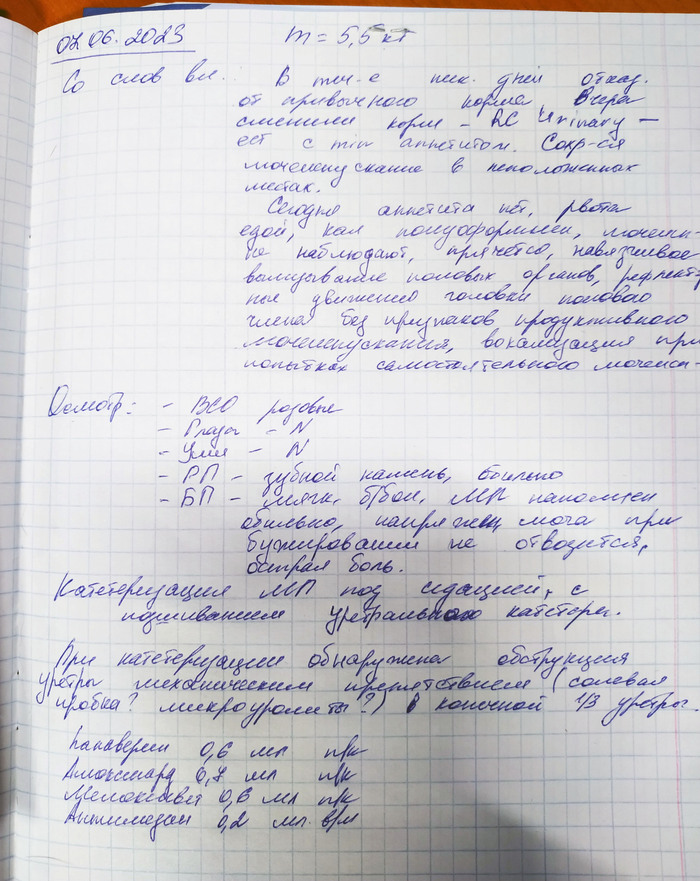 07.06.2023 m = 5,5 кг
Со слов вл. В теч-е пск. дней отказ.
от привычного корма. Вчера
сменили корм - RC Urinary -
ест с min аппетитом. Сохр-ся
мочеиспускание в неположенных
местах.
Сегодня аппетита нет, рвота
едой, кал полуоформлен, мочеисп-
не наблюдают, прячется, навязчивое
вылизывание половых органов, рефлектор-
ные движения головки полового
члена без признаков продуктивного
мочеиспускания, вокализация при
попытках самостоятельного мочеисп-
Осмотр: - ВСО розовые
- Глаза - N
- Уши - N
- РП - зубной камень, обильно
- БП - мягк. б/бол. МП наполнен
обильно, напряжен, моча при
бужировании не отводится,
острая боль.
Катетеризация МП под седацией, с
подшиванием уретрального катетера.
При катетеризации обнаружена обструкция
уретры механическим препятствием (солевая
пробка? микроуролиты?) в конечной 1/3 уретры.
Папаверин 0,6 мл п/к
Амоксигард 0,7 мл п/к
Мелоксивет 0,6 мл п/к
Антимедин 0,2 мл. в/м